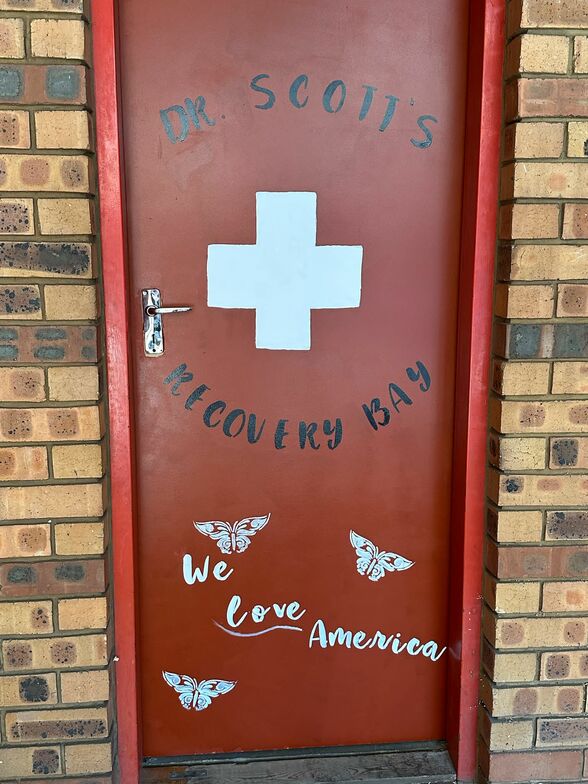 DR. SCOTT'S
RECOVERY BAY
We
love
America